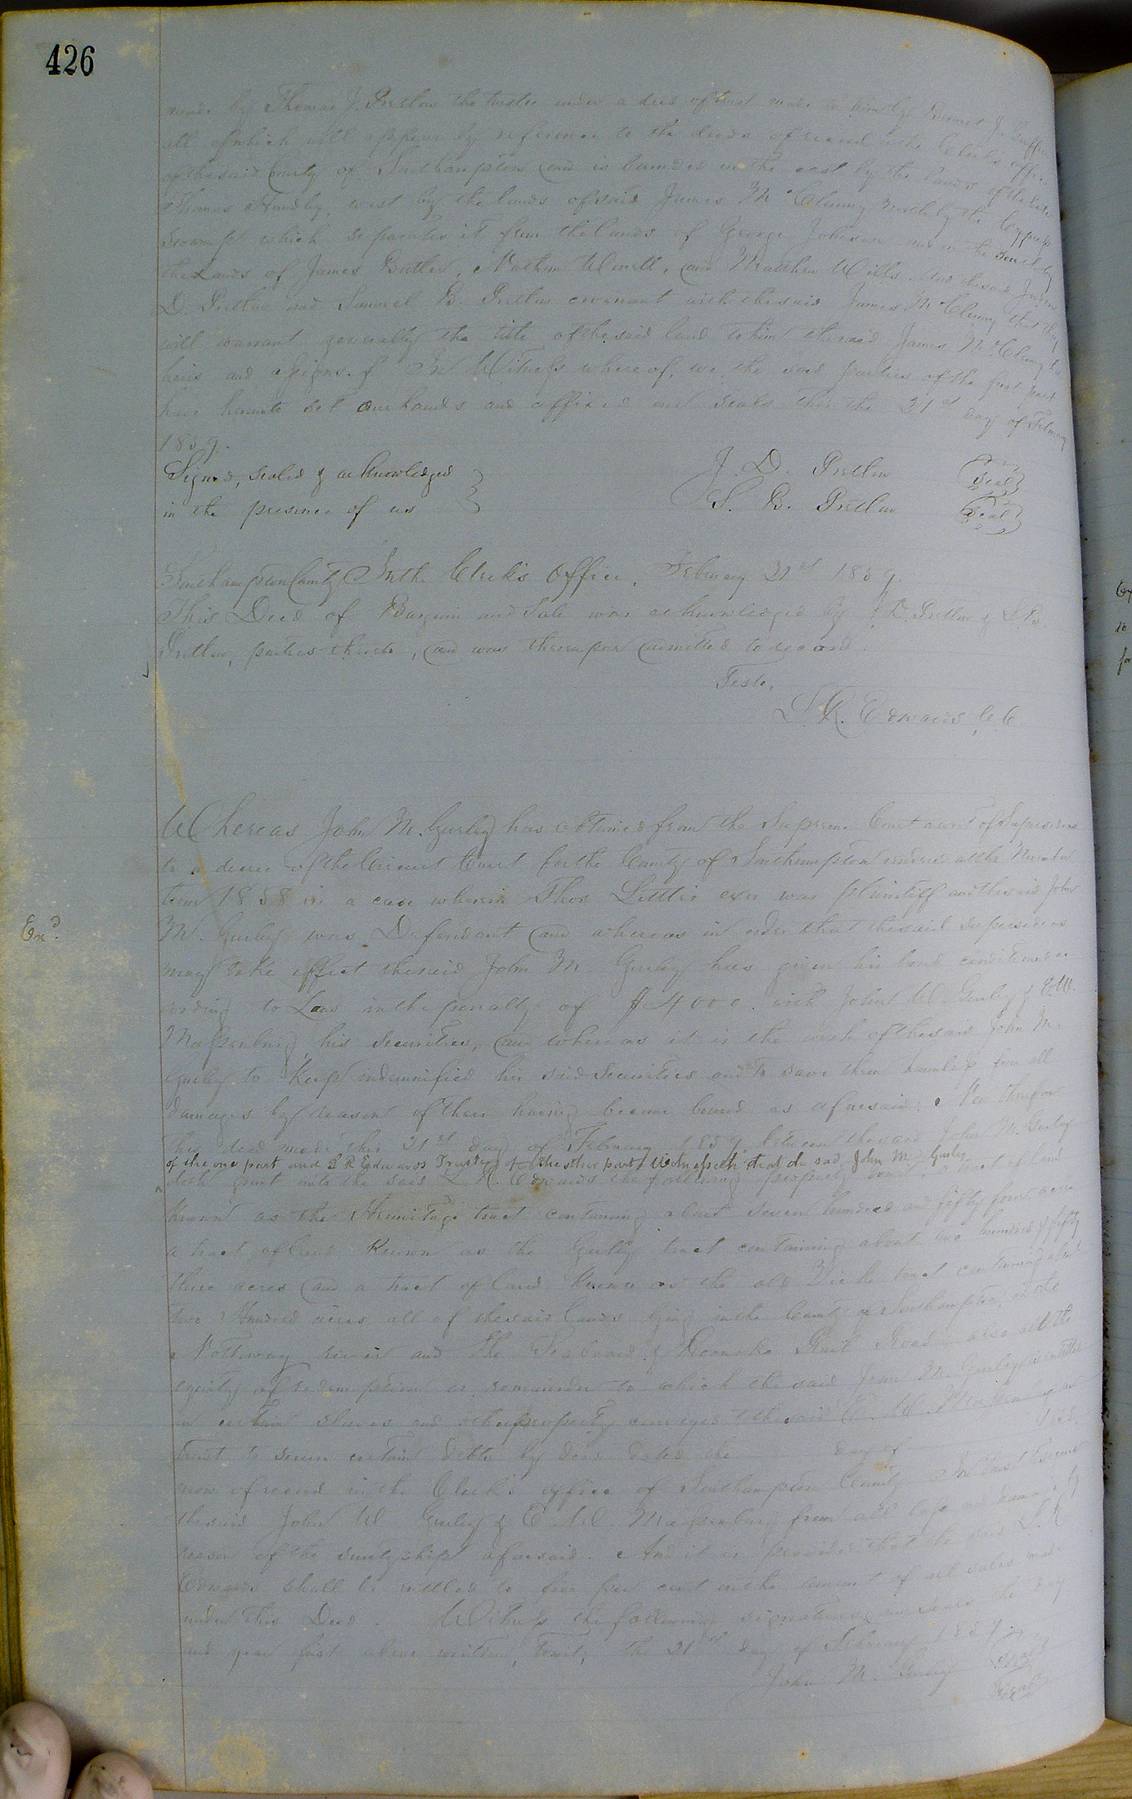 426
made by Thomas J. Pretlow the trustee under a deed of trust made to him by
all of which will appear by reference to the deeds of record in the Clerks office
of the said County of Southampton, and is bounded on the east by the lands of the
Thomas Hundley, west by the lands of said James McClenny North by the Cypress
Swamp which separates it from the lands of George Johnson and on the South by
the lands of James Butler, Nathan Worrell, and Matthew Wills. And the said
D. Pretlow and Samuel B. Pretlow covenant with the said James McClenny that they
will warrant generally the title of the said land to him the said James McClenny his
heirs and assigns. In Witness whereof, we the said parties of the first part
have hereunto set our hands and affixed our seals this the 21st day of February
1859.
Signed, sealed & acknowledged J. D. Pretlow Seal
in the presence of us S. B. Pretlow Seal
Southampton County In the Clerk's Office, February 21st 1859.
This Deed of Bargain and Sale was acknowledged by J. D. Pretlow & S. B.
Pretlow, parties thereto, and was thereupon admitted to record.
Teste,
L. R. Edwards, C. C.
Whereas John M. Gurley has obtained from the Supreme Court a writ of Supersedeas
to a decree of the Circuit Court for the County of Southampton rendered at the November
term 1858 in a case wherein Thos Little's exor was plaintiff and the said John
Exd.
M. Gurley was Defendant and whereas in order that the said supersedeas
may take effect the said John M. Gurley has given his bond conditioned
according to Law in the penalty of $4000. with John W. Gurley & E. W.
Massenburg his Securities, and whereas it is the wish of the said John M.
Gurley to keep indemnified his said Securities and to save them harmless from all
damages by reason of their having become bound as aforesaid; Now therefore
this deed made this 21st day of February 1859 between the said John M. Gurley
of the one part and L R Edwards Trustee of the other part, Witnesseth that the said John M. Gurley
doth grant unto the said L. R. Edwards the following property tract of land
known as the Hermitage tract containing about Seven hundred and fifty four acres
a tract of land known as the Gurley tract containing about two hundred & fifty
three acres and a tract of land known as the old tract containing about
two Hundred acres all of the said lands lying in the County of Southampton, on the
Nottoway river and the Seaboard & Roanoke Rail Road also all the
equity of redemption or remainder to which the said John M. Gurley is entitled
in certain slaves and other property conveyed to the said E. W. Massenburg in
trust to secure certain debts by deed dated the day of 1858
now of record in the Clerk's office of Southampton County In trust to secure
the said John W. Gurley & E. W. Massenburg from all loss and damage by
reason of the suretyship aforesaid. And it is provided that the said L. R.
Edwards shall be entitled to five per cent on the amount of all sales made
under this Deed. Witness the following signatures and seals the day
and year first above written, to wit, the 21st day of February 1859.
John M. Gurley Seal
Seal